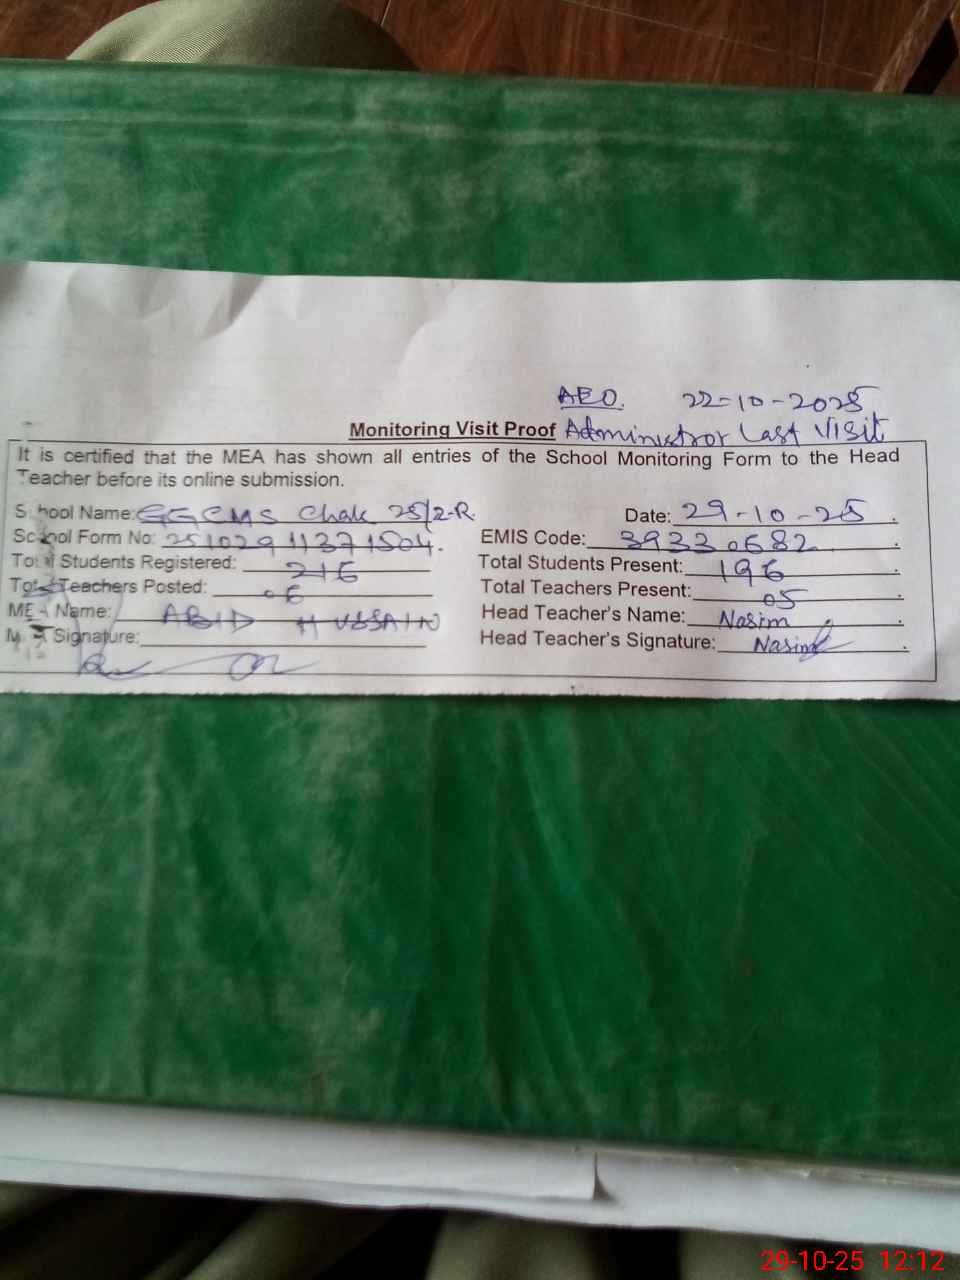 AEO. 22-10-2025
Monitoring Visit Proof Administror Last Visit
It is certified that the MEA has shown all entries of the School Monitoring Form to the Head
Teacher before its online submission.
School Name: GGCMS Chak 25/2-R. Date: 29-10-25.
School Form No: 25102911371504. EMIS Code: 39330682.
Total Students Registered: 216 Total Students Present: 196.
Total Teachers Posted: 06 Total Teachers Present: 05.
MEA Name: ABID HUSSAIN Head Teacher's Name: Nasim.
MEA Signature: Head Teacher's Signature: Nasim.
29-10-25 12:12